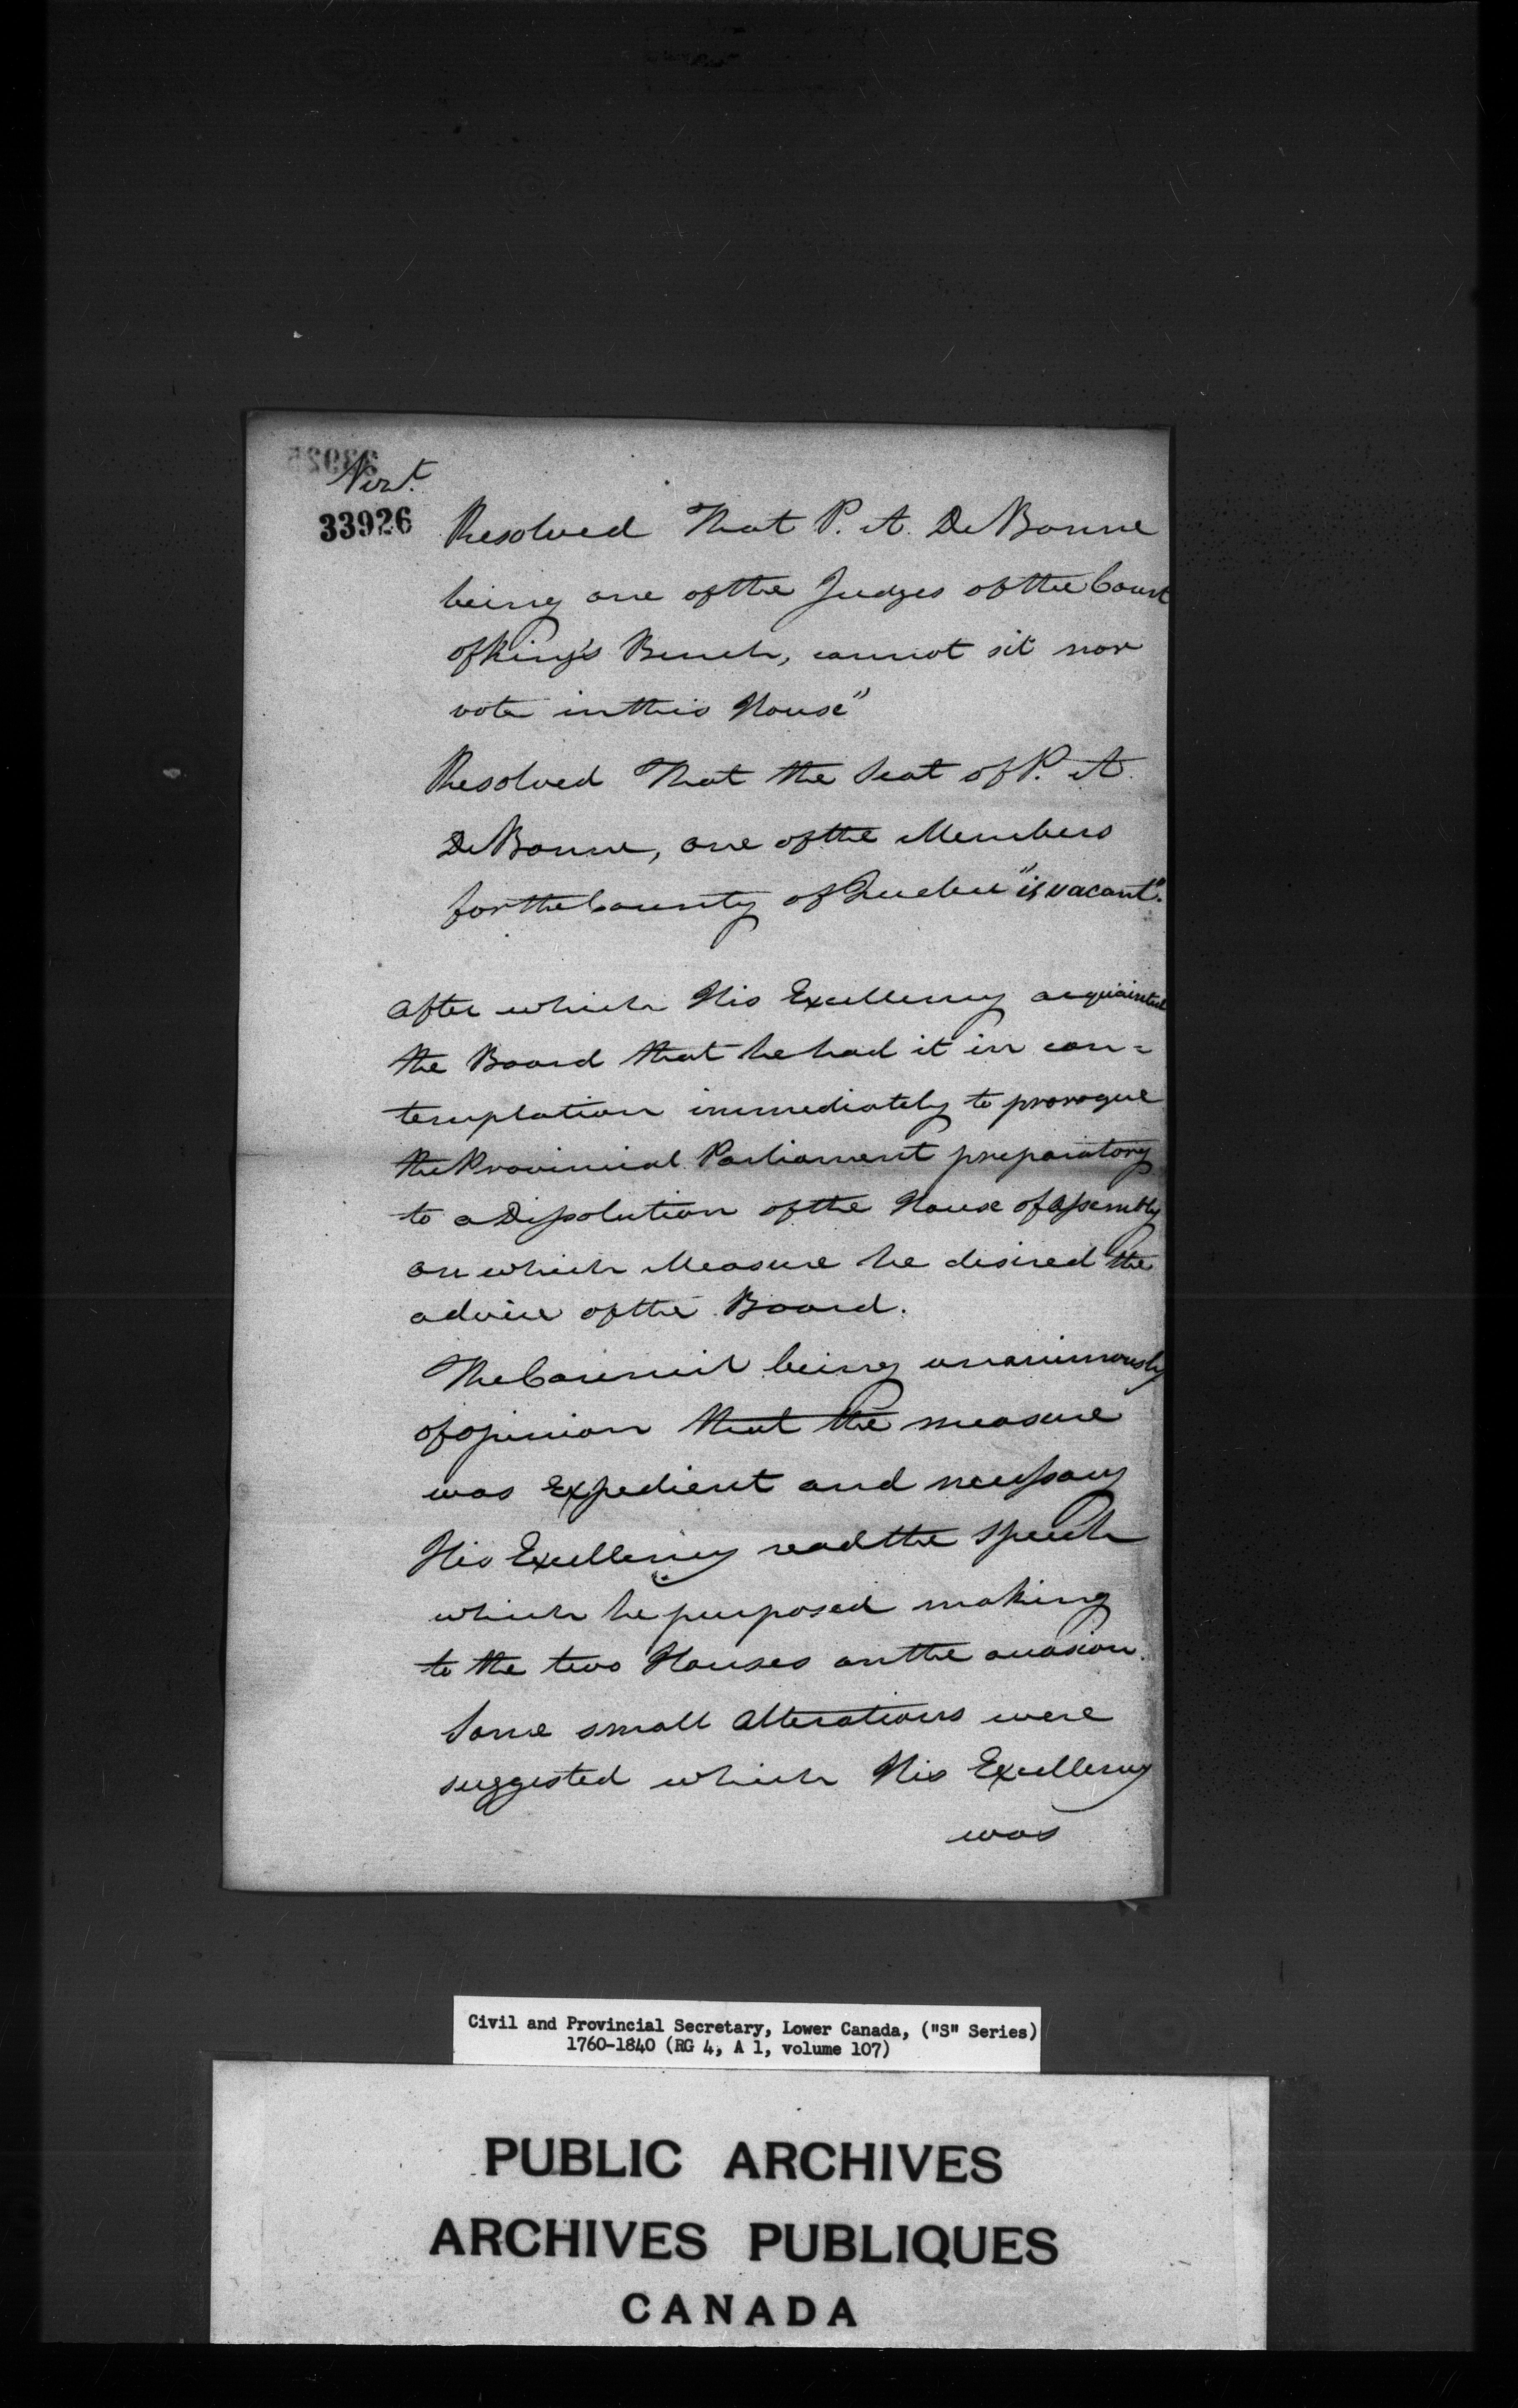 Vizt.
33926
Resolved That P. A. De Bonne
being one of the Judges of the Court
of King's Bench, cannot sit nor
vote in this House"
Resolved That the Seat of P. A.
De Bonne, one of the Members
for the County of Quebec "is vacant".
After which His Excellency acquainted
the Board that he had it in con=
templation immediately to prorogue
the Provincial Parliament preparatory
to a Dissolution of the House of Assembly
on which Measure he desired the
advice of the Board.
The Council being unanimously
of opinion that the measure
was Expedient and necessary
His Excellency read the Speech
which he purposed making
to the two Houses on the occasion.
Some small Alterations were
suggested which His Excellency
was
Civil and Provincial Secretary, Lower Canada, ("S" Series)
1760-1840 (RG 4, A 1, volume 107)
PUBLIC ARCHIVES
ARCHIVES PUBLIQUES
CANADA